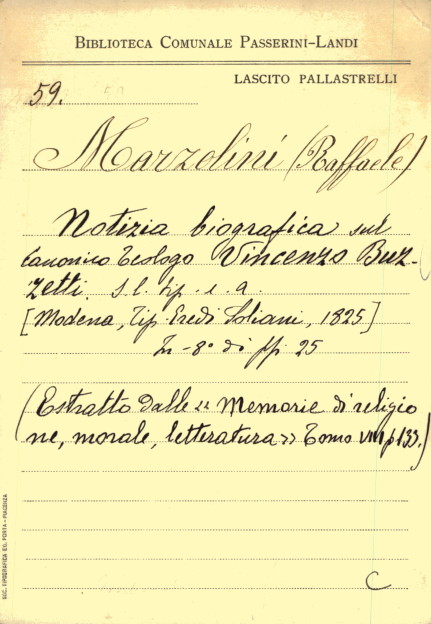 BIBLIOTECA COMUNALE PASSERINI-LANDI
LASCITO PALLASTRELLI
59.
Marzolini (Raffaele)
Notizia biografica sul
canonico teologo Vincenzo Buz-
zetti. s. l. tip. e. a.
[Modena, Tip Eredi Soliani, 1825]
In-8° di pp 25
(Estratto dalle "Memorie di religio
ne, morale, letteratura" Tomo VIII p 133.)
C
SOC. TIPOGRAFICA ED. PORTA - PIACENZA